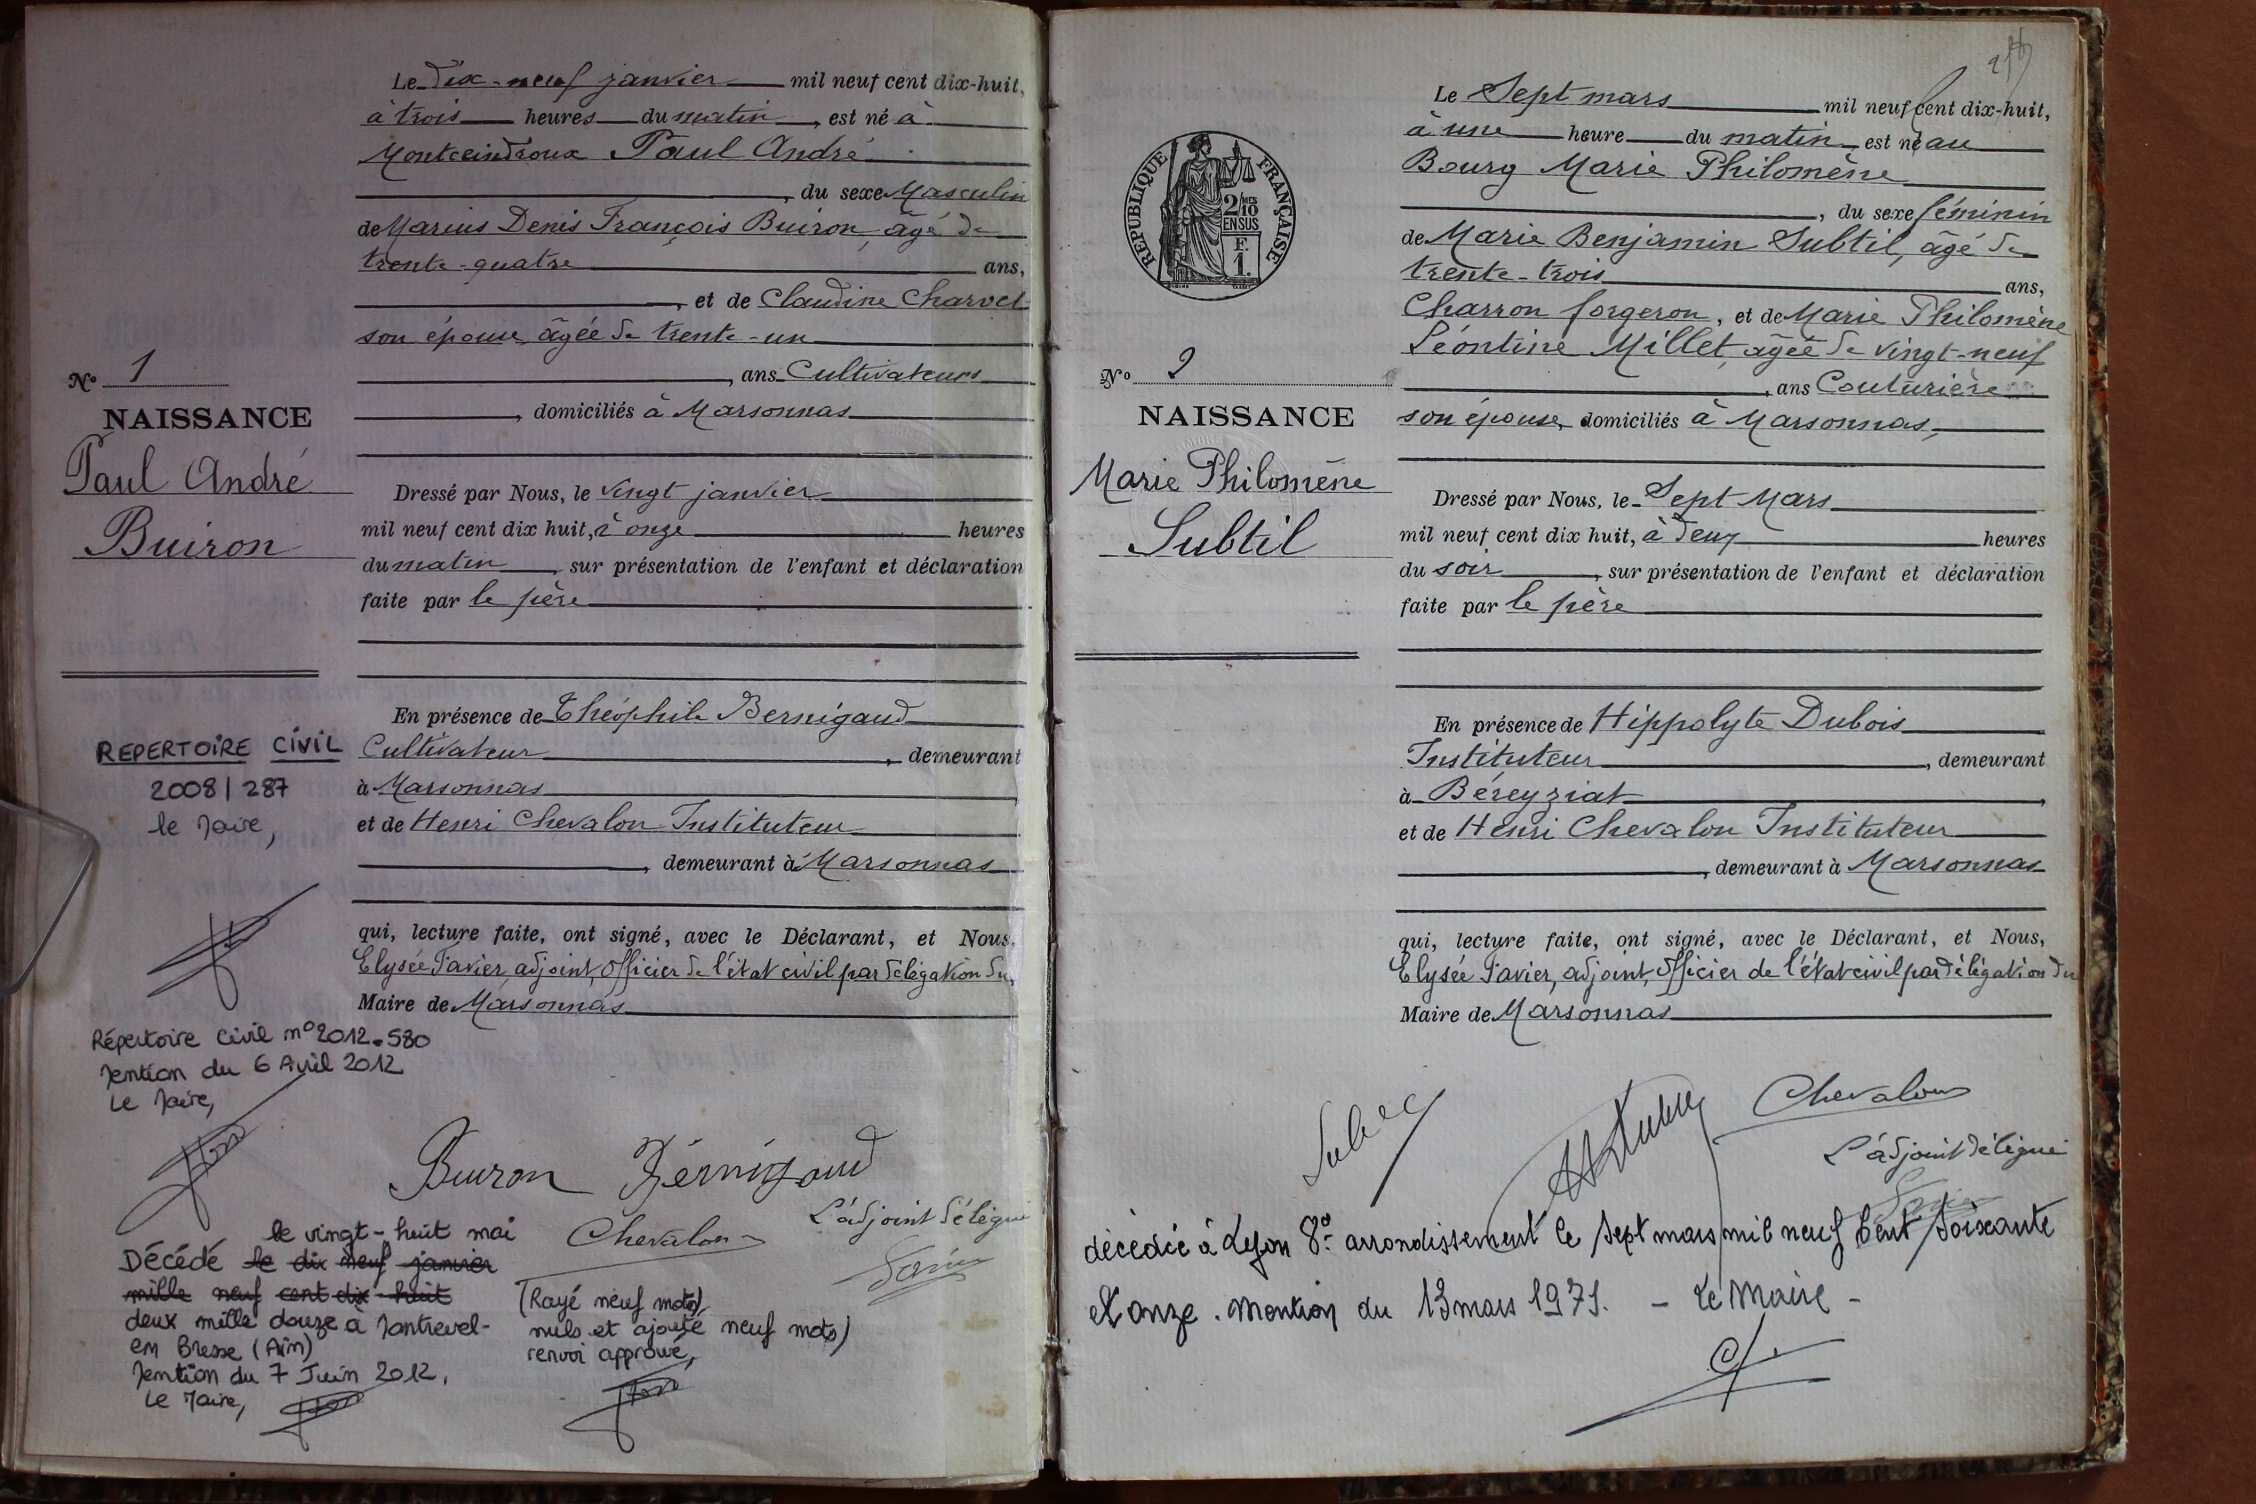 Le dix-neuf janvier mil neuf cent dix-huit,
à trois heures du matin, est né à
Montceindroux Paul André
, du sexe Masculin
de Marius Denis François Buiron, âgé de
trente-quatre ans,
, et de Claudine Charvet
son épouse âgée de trente-un
, ans Cultivateurs
, domiciliés à Marsonnas
Nº 1
NAISSANCE
Paul André
Buiron
Dressé par Nous, le vingt janvier
mil neuf cent dix huit, à onze heures
du matin, sur présentation de l'enfant et déclaration
faite par le père
En présence de Théophile Bernigaud
Cultivateur, demeurant
à Marsonnas
et de Henri Chevalon Instituteur
, demeurant à Marsonnas
qui, lecture faite, ont signé, avec le Déclarant, et Nous,
Elysée Favier, adjoint, officier de l'état civil par délégation du
Maire de Marsonnas
REPERTOIRE CIVIL
2008/287
le Maire,
Répertoire Civil nº 2012.580
Mention du 6 Avril 2012
Le Maire,
Buiron Bernigaud
Chevalon
L'adjoint délégué
Favier
le vingt-huit mai
Décédé le dix neuf janvier
mille neuf cent dix huit
deux mille douze à Montrevel-
en Bresse (Ain)
Mention du 7 Juin 2012.
Le Maire,
(Rayé neuf mots)
nuls et ajouté neuf mots)
renvoi approuvé,
Le Sept mars mil neuf cent dix-huit,
à une heure du matin, est né au
Bourg Marie Philomène
, du sexe féminin
de Marie Benjamin Subtil, âgé de
trente-trois ans,
Charron forgeron, et de Marie Philomène
Léontine Millet, âgée de vingt-neuf
, ans Couturière
son épouse, domiciliés à Marsonnas,
REPUBLIQUE FRANÇAISE
2/10 MES
EN SUS
F.
1.
Nº 2
NAISSANCE
Marie Philomène
Subtil
Dressé par Nous, le Sept Mars
mil neuf cent dix huit, à deux heures
du soir, sur présentation de l'enfant et déclaration
faite par le père
En présence de Hippolyte Dubois
Instituteur, demeurant
à Béreyziat,
et de Henri Chevalon Instituteur
, demeurant à Marsonnas
qui, lecture faite, ont signé, avec le Déclarant, et Nous,
Elysée Favier, adjoint, officier de l'état civil par délégation du
Maire de Marsonnas
Chevalon
L'adjoint délégué
Favier
décédée à Lyon 8e arrondissement le sept mars mil neuf cent soixante
et onze. Mention du 13 mars 1971. - Le Maire -